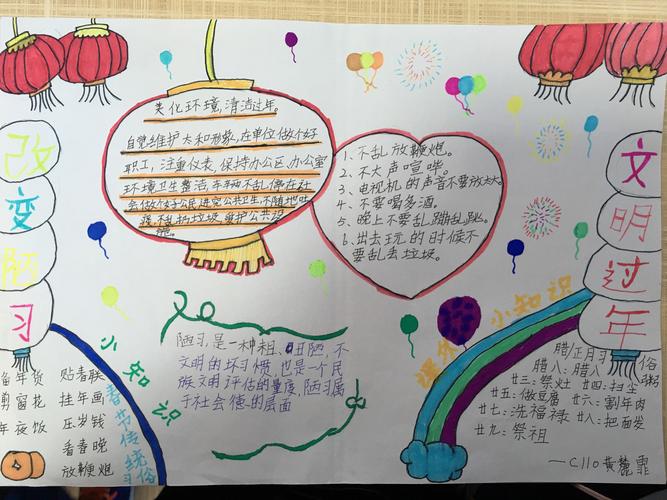 改变陋习
美化环境,清洁过年。
自觉维护大和形象,在单位做个好
职工,注重仪表,保持办公区,办公室
环境卫生整洁,车辆不乱停在社
会做个好公民,讲究公共卫生,不随地吐
痰,不乱扔垃圾,爱护公共设
施。
1、不乱放鞭炮。
2、不大声喧哗。
3、电视机的声音不要放太大。
4、不要喝多酒。
5、晚上不要乱蹦乱跳。
6、出去玩的时候不
要乱丢垃圾。
文明过年
小知识
春节传统习俗
备年货 贴春联
剪窗花 挂年画
年夜饭 压岁钱
看春晚
放鞭炮
陋习,是一种粗、丑陋、不
文明的坏习惯,也是一个民
族文明评估的量度,陋习属
于社会德的层面
课外小知识
腊/正月习俗
腊八:腊八粥
廿三:祭灶 廿四:扫尘
廿五:做豆腐 廿六:割年肉
廿七:洗福禄 廿八:把面发
廿九:祭祖
—C110黄麓霏